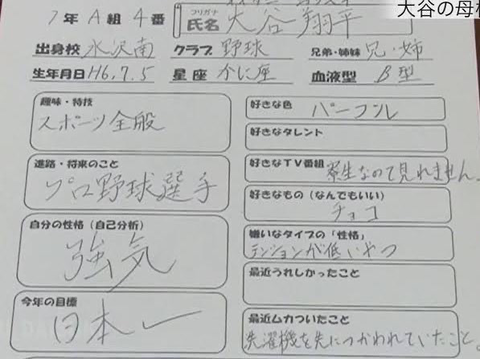 大谷の母校
1年A組4番
フリガナ
氏名 大谷翔平
出身校 水沢南 クラブ 野球 兄弟・姉妹 兄・姉
生年月日 H6.7.5 星座 かに座 血液型 B型
趣味・特技
スポーツ全般
進路・将来のこと
プロ野球選手
自分の性格（自己分析）
強気
今年の目標
日本一
好きな色
パープル
好きなタレント
好きなTV番組
寮生なので見れません。
好きなもの（なんでもいい）
チョコ
嫌いなタイプの「性格」
テンションが低いやつ
最近うれしかったこと
最近ムカついたこと
洗濯機を先につかわれていたこと。